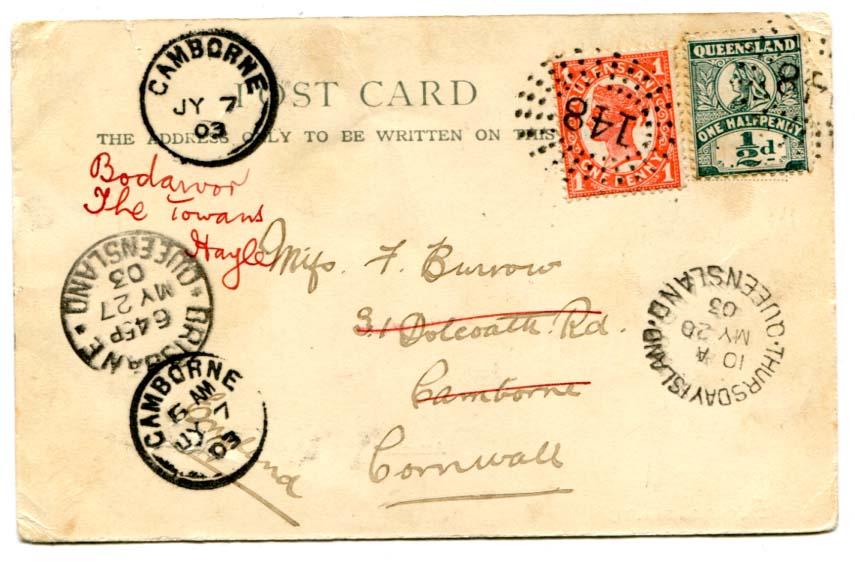 CAMBORNE
JY 7
03
POST CARD
THE ADDRESS ONLY TO BE WRITTEN ON THIS
QUEENSLAND
ONE PENNY
1
1
1
148
QUEENSLAND
ONE HALFPENNY
1/2d
8
Bodarvor
The Towans
Hayle
Miss. F. Burrow
31 Dolcoath Rd.
Camborne
Cornwall
England
BRISBANE
6 45P
MY 27
03
QUEENSLAND
CAMBORNE
5 AM
JY 7
03
THURSDAY ISLAND
10 A
MY 20
03
QUEENSLAND